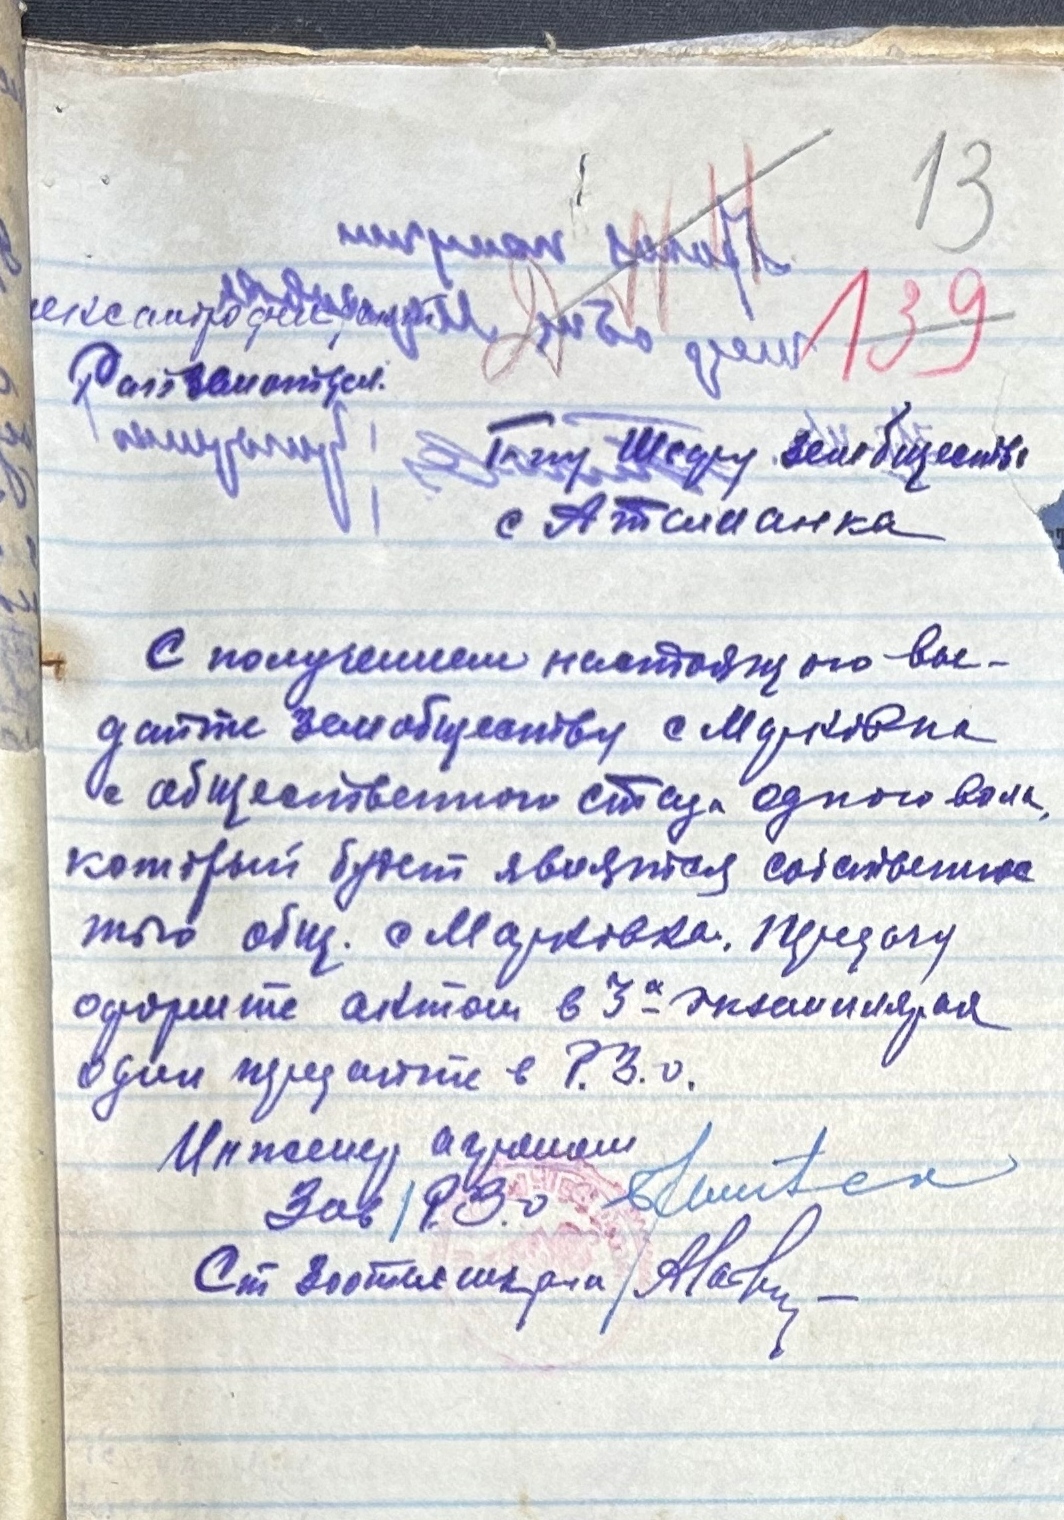 13
139
Райземотдел.
Гану Шедру Земобществ
с Атаманка
С получением настоящого вы-
дайте Земобществу с Марківка
с общественного стада одного вола,
который будет являятся собственнос
тью общ. с Марківка. Передачу
оформите актом в 3х экземплярах
один передайте в Р.З.о.
Инженер агроном
Зав Р.З.о
Ст Зоотехник